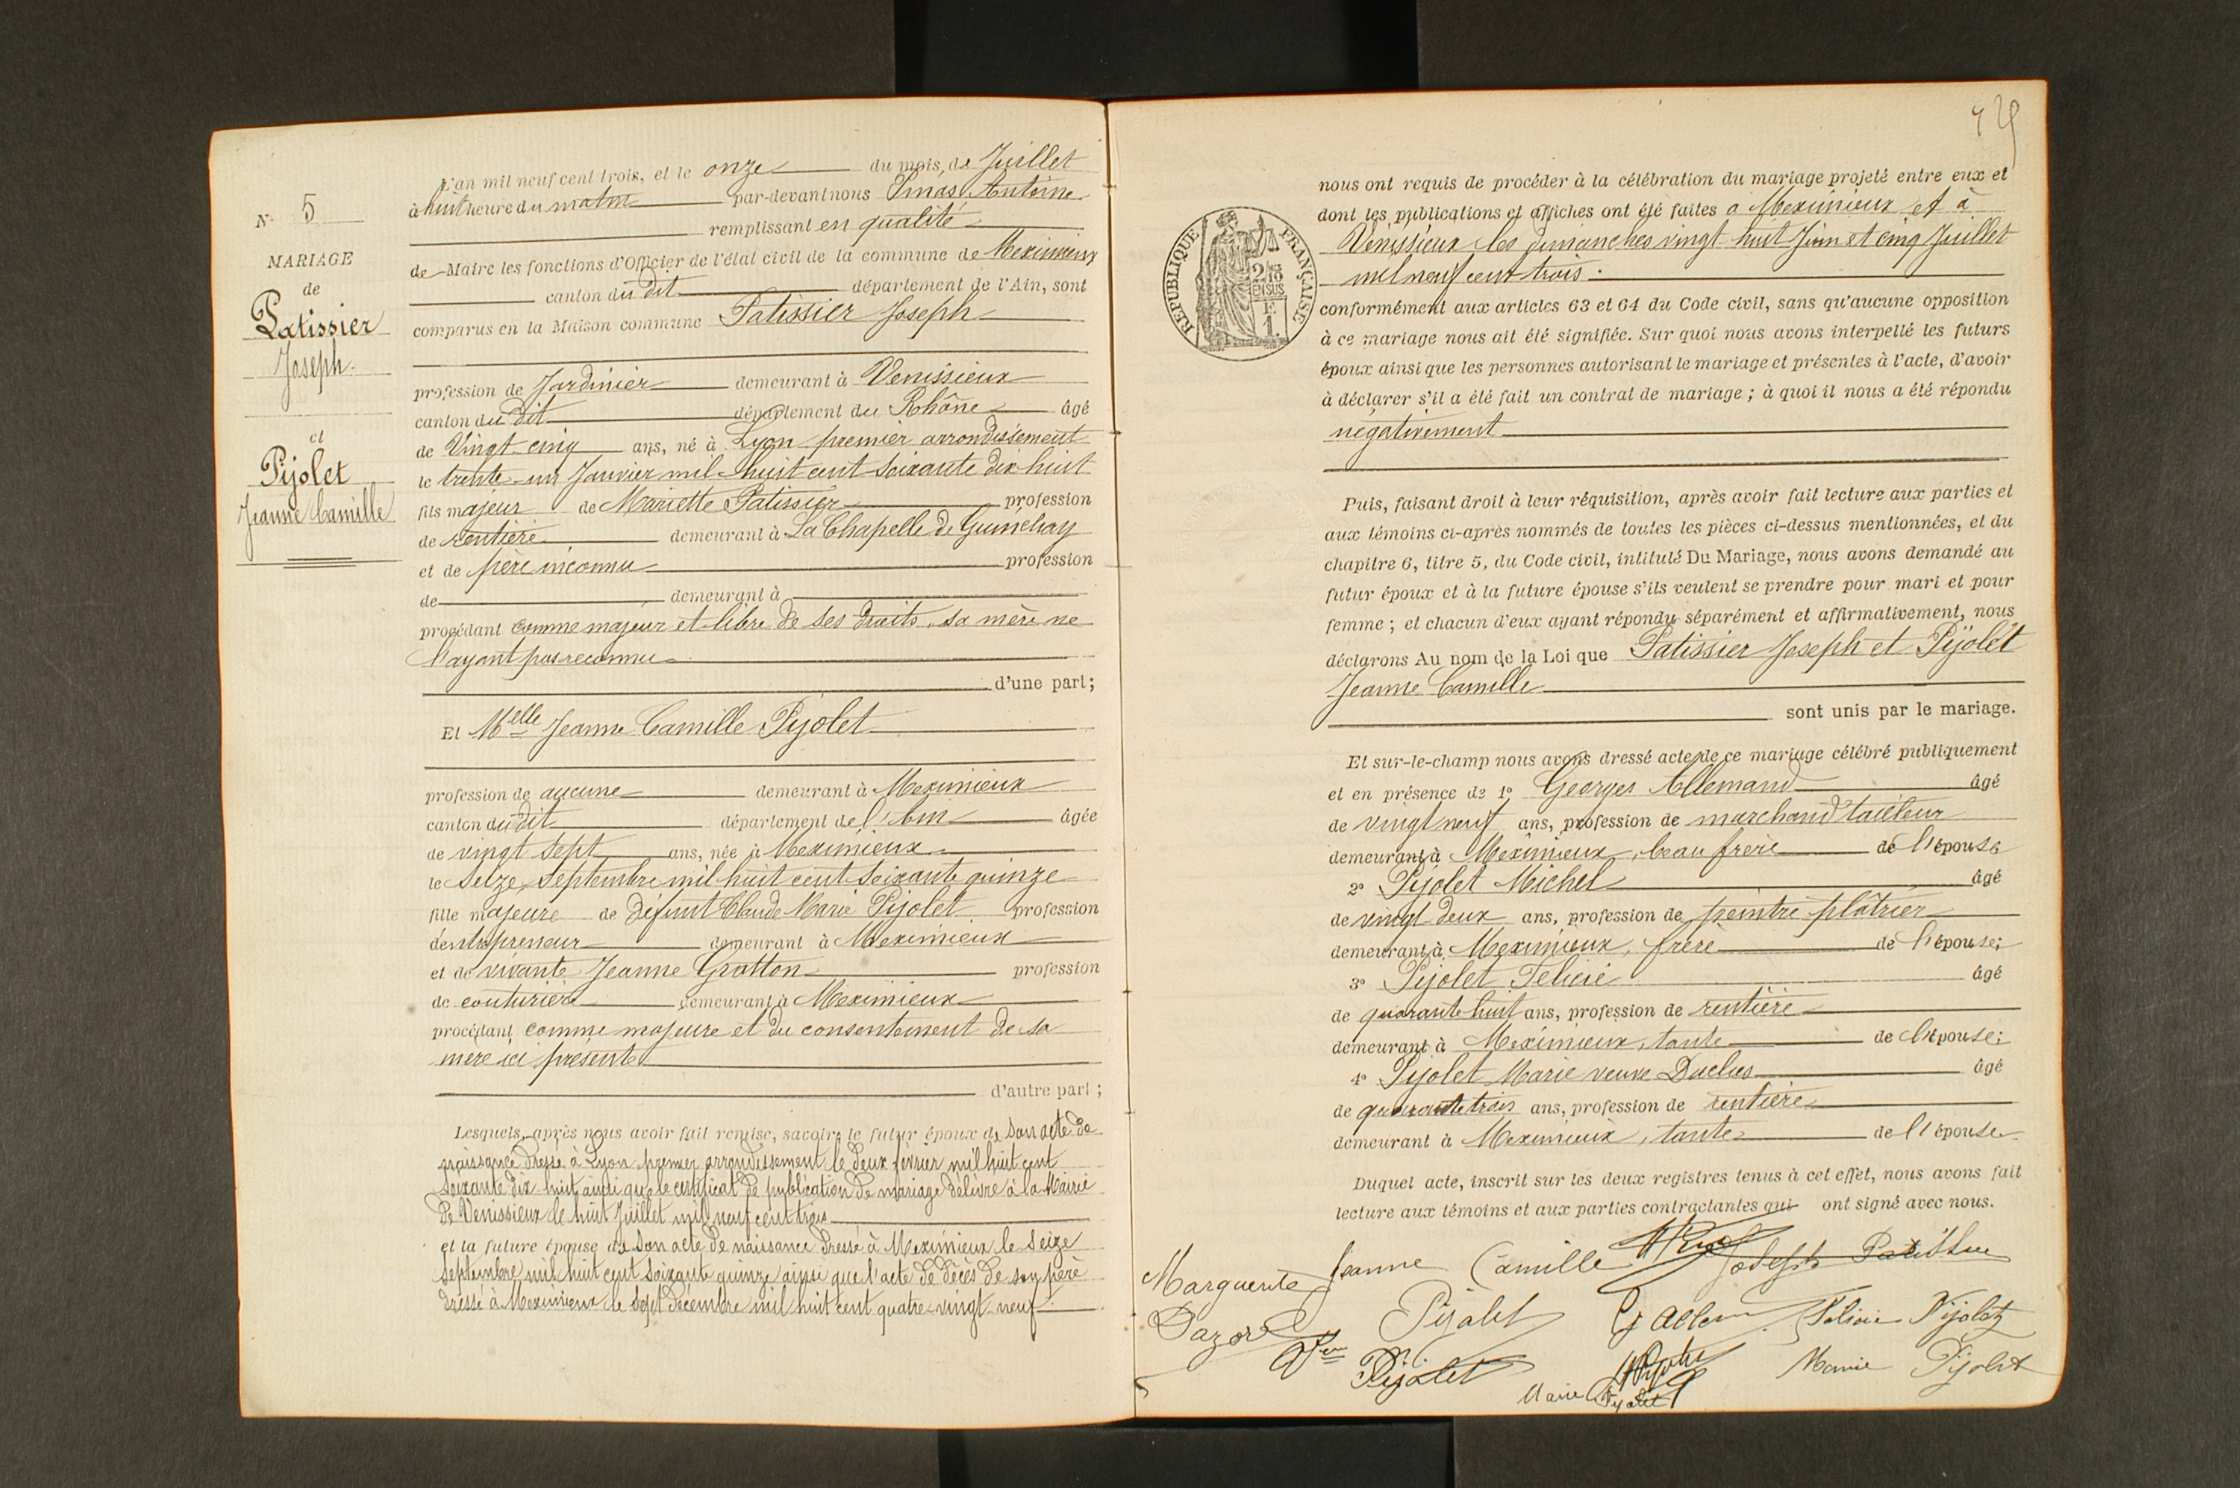 N° 5
MARIAGE
de
Patissier
Joseph.
et
Pijolet
Jeanne Camille
L'an mil neuf cent trois, et le onze du mois de Juillet
à huit heure du matin par-devant nous Antoine
remplissant en qualité
de Maire les fonctions d'Officier de l'état civil de la commune de Meximieux
canton du dit département de l'Ain, sont
comparus en la Maison commune Patissier Joseph
profession de Jardinier demeurant à Venissieux
canton du dit département du Rhône âgé
de Vingt cinq ans, né à Lyon premier arrondissement
le trente-un Janvier mil huit cent soixante dix huit
fils majeur de Mariette Patissier profession
de rentière demeurant à La Chapelle de Guinchay
et de père inconnu profession
de demeurant à
procédant comme majeur et libre de ses droits, sa mère ne
l'ayant pas reconnu
d'une part;
Et Melle Jeanne Camille Pijolet
profession de aucune demeurant à Meximieux
canton du dit département de l'Ain âgée
de vingt sept ans, née à Meximieux
le seize Septembre mil huit cent soixante quinze
fille majeure de défunt Claude Marie Pijolet profession
d'entrepreneur demeurant à Meximieux
et de vivante Jeanne Gratton profession
de couturière demeurant à Meximieux
procédant comme majeure et du consentement de sa
mère ici présente
d'autre part;
Lesquels, après nous avoir fait remise, savoir: le futur époux de son acte de
naissance dressé à Lyon premier arrondissement le deux février mil huit cent
soixante dix-huit ainsi que le certificat de publication de mariage délivré à la Mairie
de Venissieux le huit Juillet mil neuf cent trois
et la future épouse de son acte de naissance dressé à Meximieux le seize
septembre mil huit cent soixante quinze ainsi que l'acte de décès de son père
dressé à Meximieux le sept décembre mil huit cent quatre-vingt-neuf.
RÉPUBLIQUE FRANÇAISE
nous ont requis de procéder à la célébration du mariage projeté entre eux et
dont les publications et affiches ont été faites à Meximieux et à
Vénissieux les dimanches vingt-huit Juin et cinq Juillet
mil neuf cent trois.
conformément aux articles 63 et 64 du Code civil, sans qu'aucune opposition
à ce mariage nous ait été signifiée. Sur quoi nous avons interpellé les futurs
époux ainsi que les personnes autorisant le mariage et présentes à l'acte, d'avoir
à déclarer s'il a été fait un contrat de mariage; à quoi il nous a été répondu
négativement
Puis, faisant droit à leur réquisition, après avoir fait lecture aux parties et
aux témoins ci-après nommés de toutes les pièces ci-dessus mentionnées, et du
chapitre 6, titre 5, du Code civil, intitulé Du Mariage, nous avons demandé au
futur époux et à la future épouse s'ils veulent se prendre pour mari et pour
femme; et chacun d'eux ayant répondu séparément et affirmativement, nous
déclarons Au nom de la Loi que Patissier Joseph et Pijolet
Jeanne Camille
sont unis par le mariage.
Et sur-le-champ nous avons dressé acte de ce mariage célébré publiquement
et en présence de 1° Georges Allemand âgé
de vingt neuf ans, profession de marchand tailleur
demeurant à Meximieux, beau frère de l'épouse
2° Pijolet Michel âgé
de vingt deux ans, profession de peintre plâtrier
demeurant à Meximieux, frère de l'épouse;
3° Pijolet Felicie âgé
de quarante huit ans, profession de rentière
demeurant à Meximieux, tante de l'épouse;
4° Pijolet Marie veuve Duclos âgé
de quarante trois ans, profession de rentière
demeurant à Meximieux, tante de l'épouse
Duquel acte, inscrit sur les deux registres tenus à cet effet, nous avons fait
lecture aux témoins et aux parties contractantes qui ont signé avec nous.
Marguerite Jeanne Camille Joseph Patissier
Pijolet Felicie Pijolet
Pijolet Marie Pijolet
Marie Pijolet